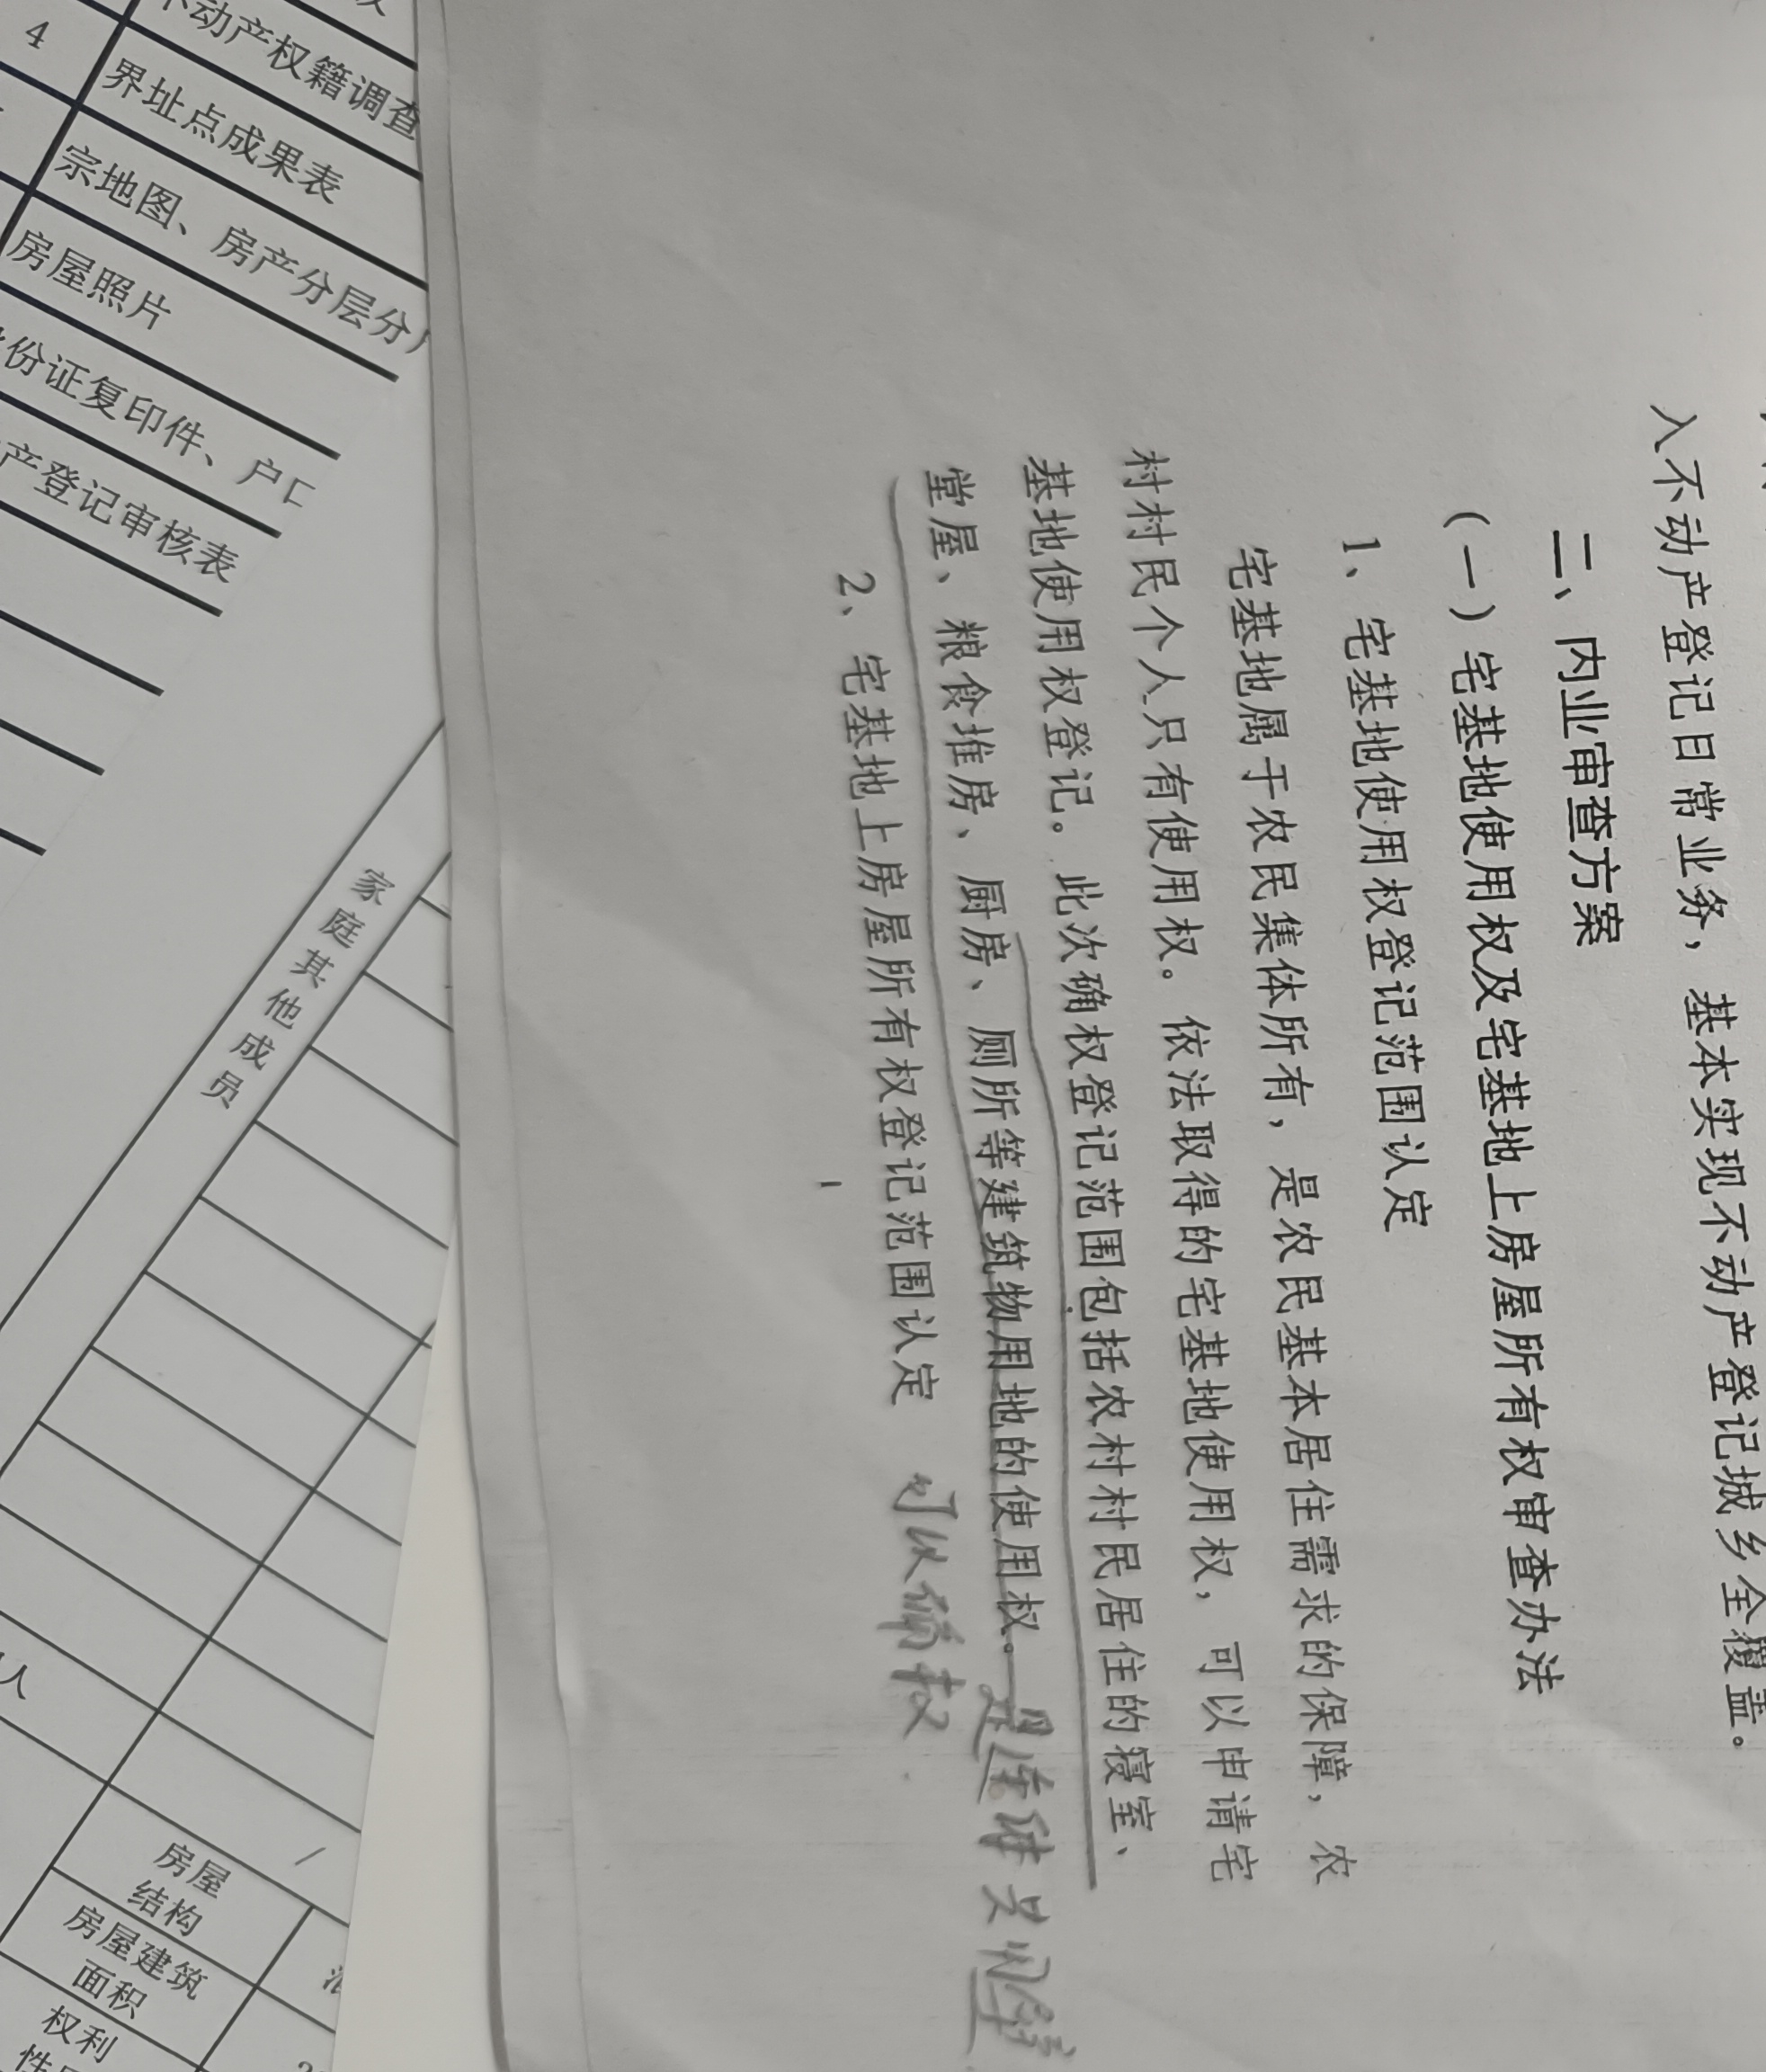 入不动产登记日常业务，基本实现不动产登记城乡全覆盖。
二、内业审查方案
（一）宅基地使用权及宅基地上房屋所有权审查办法
1、宅基地使用权登记范围认定
宅基地属于农民集体所有，是农民基本居住需求的保障，农
村村民个人只有使用权。依法取得的宅基地使用权，可以申请宅
基地使用权登记。此次确权登记范围包括农村村民居住的寝室、
堂屋、粮食堆房、厨房、厕所等建筑物用地的使用权。
2、宅基地上房屋所有权登记范围认定
可以确权
4
不动产权籍调查
界址点成果表
宗地图、房产分层分
房屋照片
份证复印件、户口
产登记审核表
家庭其他成员
人
房屋
结构
房屋建筑
面积
权利